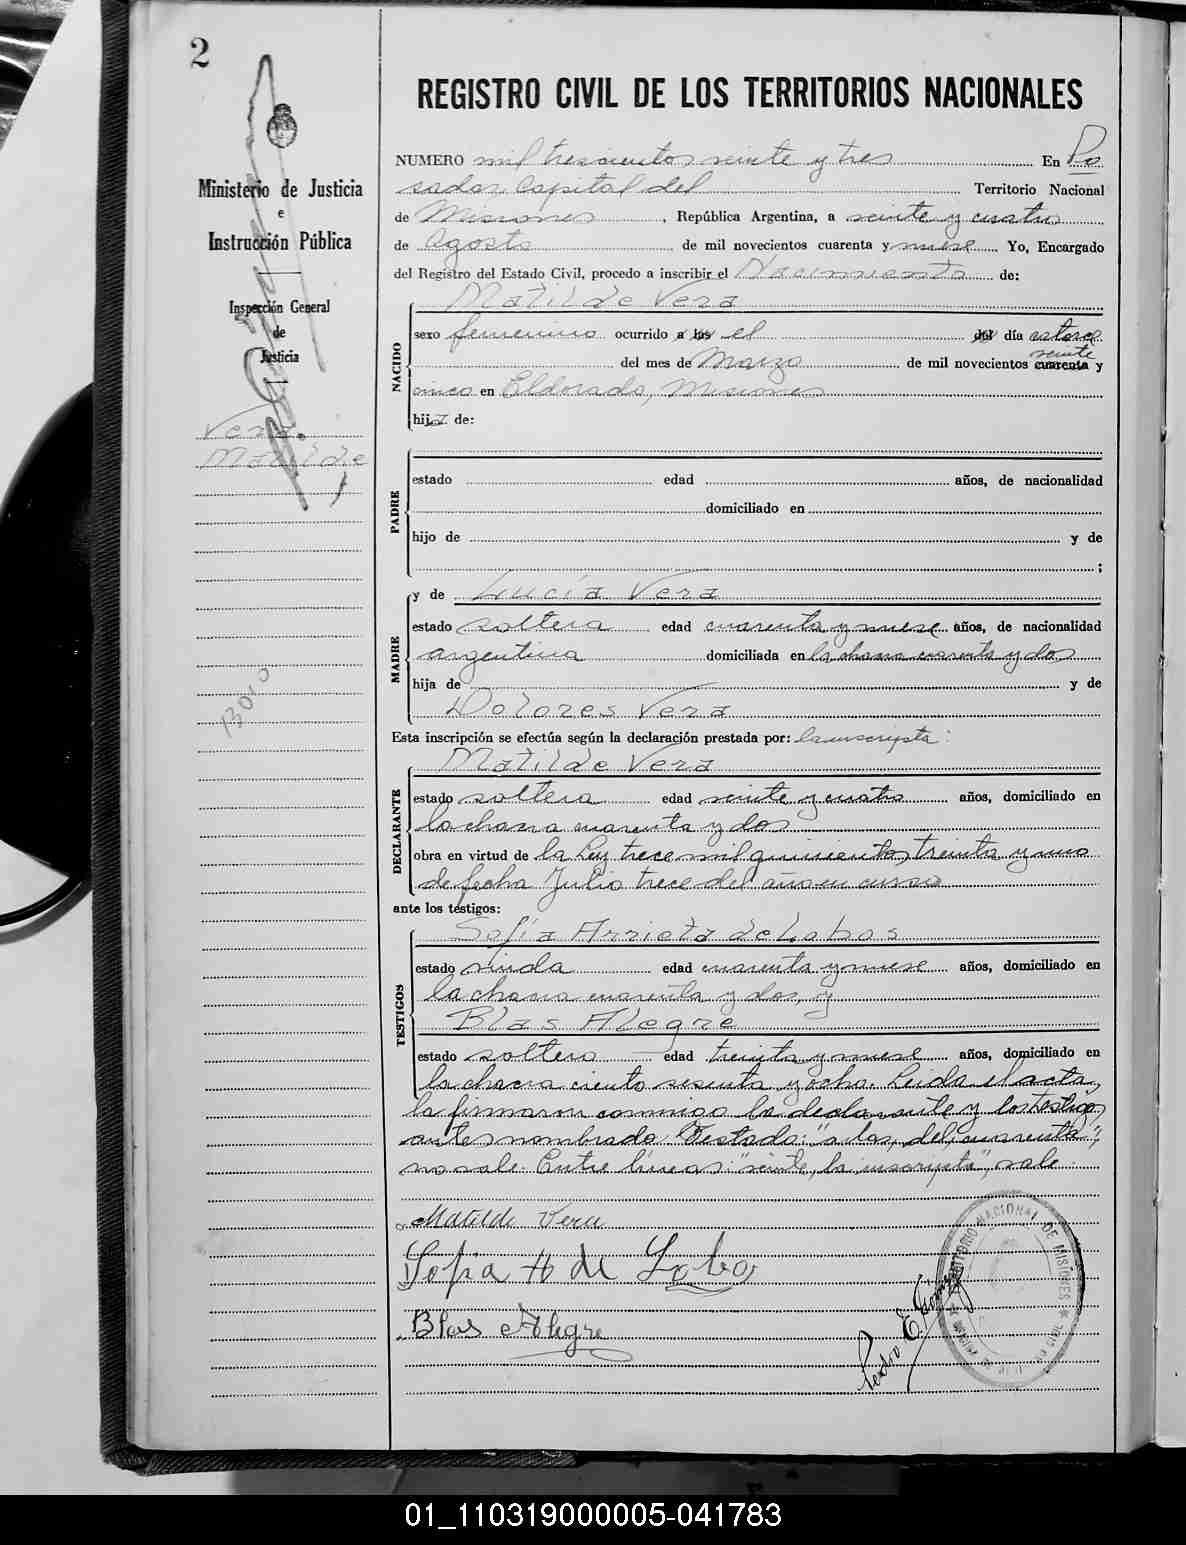 2
REGISTRO CIVIL DE LOS TERRITORIOS NACIONALES
Ministerio de Justicia
e
Instrucción Pública
Inspección General
de
Justicia
Vera.
Matilde
NUMERO mil trescientos veinte y tres En Po
sadas Capital del Territorio Nacional
de Misiones, República Argentina, a veinte y cuatro
de Agosto de mil novecientos cuarenta y nueve Yo, Encargado
del Registro del Estado Civil, procedo a inscribir el Nacimiento de:
NACIDO
Matilde Vera
sexo femenino ocurrido a las el del día catorce
veinte
del mes de Marzo de mil novecientos cuarenta y
cinco en Eldorado, Misiones
hija de:
PADRE
estado edad años, de nacionalidad
domiciliado en
hijo de y de
;
MADRE
y de Lucía Vera
estado soltera edad cuarenta y nueve años, de nacionalidad
argentina domiciliada en la chacra cuarenta y dos
hija de y de
Dolores Vera
Esta inscripción se efectúa según la declaración prestada por: la inscripta:
DECLARANTE
Matilde Vera
estado soltera edad veinte y cuatro años, domiciliado en
la chacra cuarenta y dos
obra en virtud de la Ley trece mil quinientos treinta y uno
de fecha Julio trece del año en curso
ante los testigos:
TESTIGOS
Sofía Arrieta de Lobos
estado viuda edad cuarenta y nueve años, domiciliado en
la chacra cuarenta y dos, y
Blas Alegre
estado soltero edad treinta y nueve años, domiciliado en
la chacra ciento sesenta y ocho. Leida el acta,
la firmaron conmigo la declarante y los testigos
antes nombrado. Testado: "a las, del, cuarenta",
no vale. Entre líneas: "veinte, la inscripta", vale.
Matilde Vera
Sofia A de Lobo
Blas Alegre
Pedro E.
TERRITORIO NACIONAL DE MISIONES
01_110319000005-041783